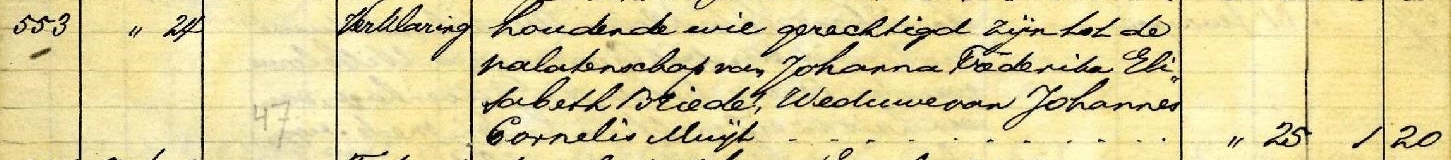 553 " 24 Verklaring houdende wie gerechtigd zijn tot de
nalatenschap van Johanna Frederika Eli"
sabeth Briedé, Weduwe van Johannes
47
Cornelis Muijt . . . . . . . . . . . . " 25 1 20